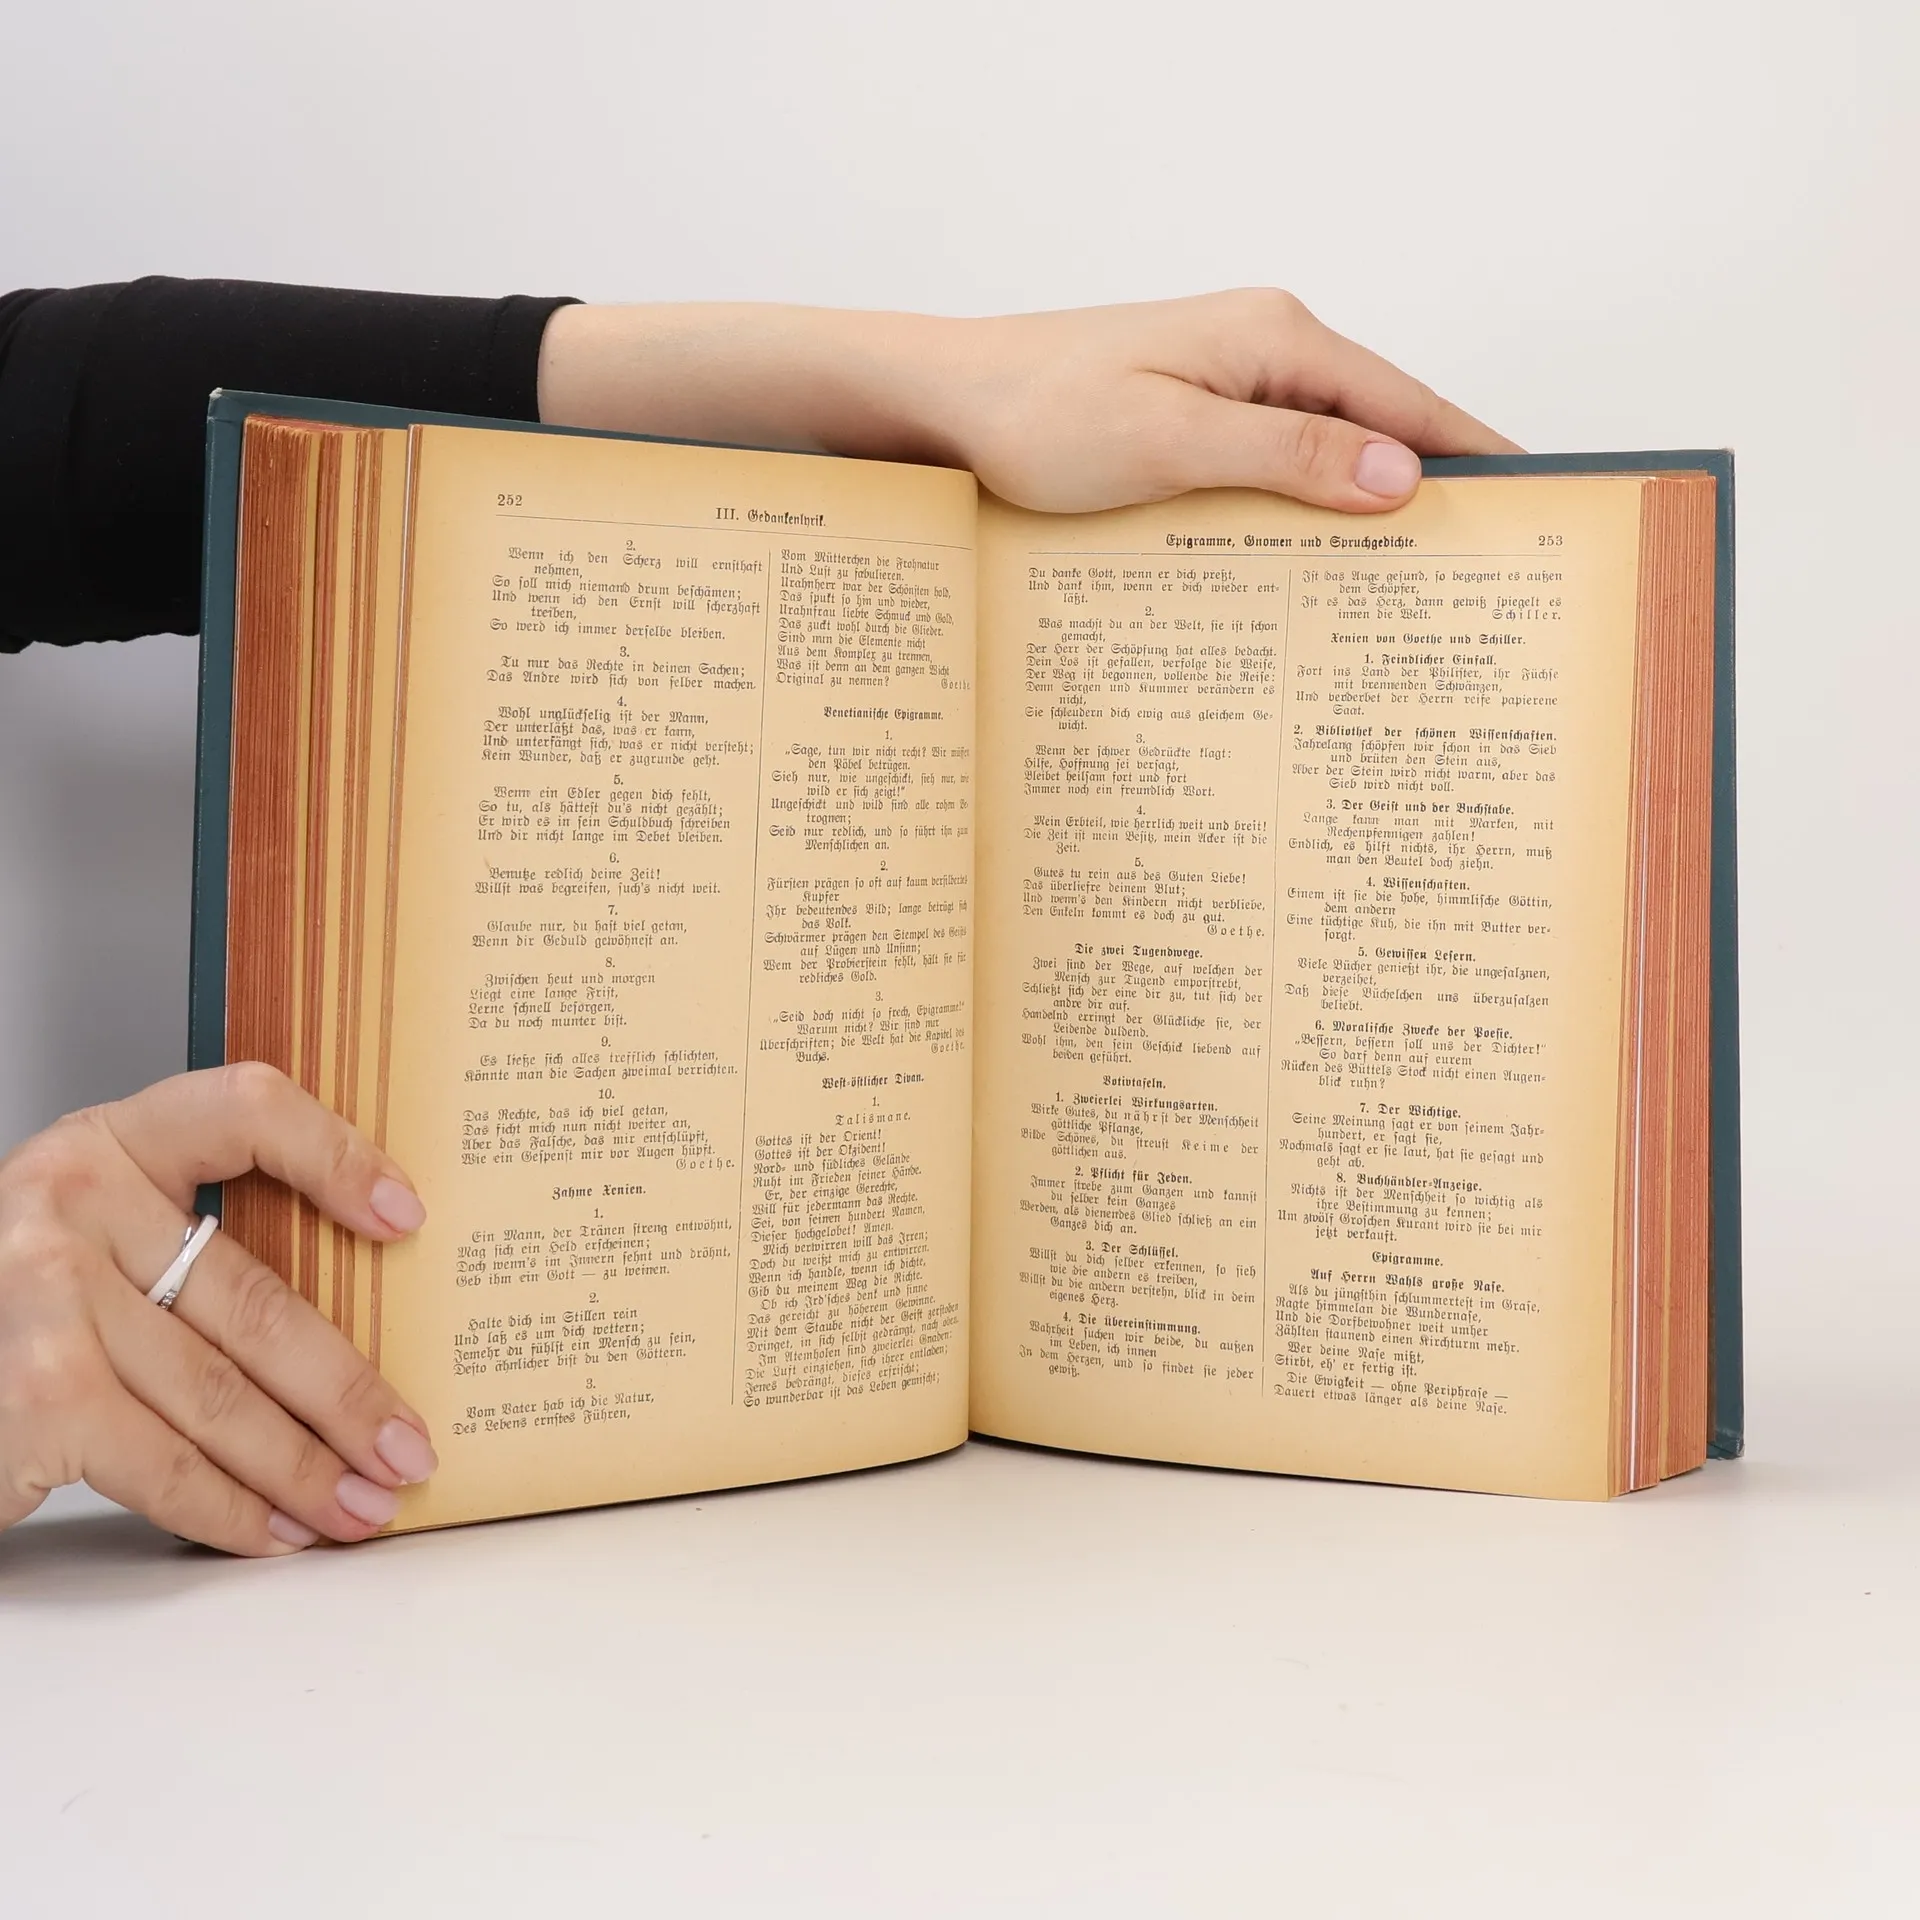 252
III. Gedankenlyrik.
2.
Wenn ich den Scherz will ernsthaft
nehmen,
So soll mich niemand drum beschämen;
Und wenn ich den Ernst will scherzhaft
treiben,
So werd ich immer derselbe bleiben.
3.
Tu nur das Rechte in deinen Sachen;
Das Andre wird sich von selber machen.
4.
Wohl unglückselig ist der Mann,
Der unterläßt das, was er kann,
Und unterfängt sich, was er nicht versteht;
Kein Wunder, daß er zugrunde geht.
5.
Wenn ein Edler gegen dich fehlt,
So tu, als hättest du's nicht gezählt;
Er wird es in sein Schuldbuch schreiben
Und dir nicht lange im Debet bleiben.
6.
Benutze redlich deine Zeit!
Willst was begreifen, such's nicht weit.
7.
Glaube nur, du hast viel getan,
Wenn dir Geduld gewöhnest an.
8.
Zwischen heut und morgen
Liegt eine lange Frist,
Lerne schnell besorgen,
Da du noch munter bist.
9.
Es ließe sich alles trefflich schlichten,
Könnte man die Sachen zweimal verrichten.
10.
Das Rechte, das ich viel getan,
Das ficht mich nun nicht weiter an,
Aber das Falsche, das mir entschlüpft,
Wie ein Gespenst mir vor Augen hüpft.
Goethe.
Zahme Xenien.
1.
Ein Mann, der Tränen streng entwöhnt,
Mag sich ein Held erscheinen;
Doch wenn's im Innern sehnt und dröhnt,
Geb ihm ein Gott — zu weinen.
2.
Halte dich im Stillen rein
Und laß es um dich wettern;
Jemehr du fühlst ein Mensch zu sein,
Desto ähnlicher bist du den Göttern.
3.
Vom Vater hab ich die Natur,
Des Lebens ernstes Führen,
Vom Mütterchen die Frohnatur
Und Lust zu fabulieren.
Urahnherr war der Schönsten hold,
Das spukt so hin und wieder,
Urahnfrau liebte Schmuck und Gold,
Das zuckt wohl durch die Glieder.
Sind nun die Elemente nicht
Aus dem Komplex zu trennen,
Was ist denn an dem ganzen Wicht
Original zu nennen?
Goethe.
Venetianische Epigramme.
1.
„Sage, tun wir nicht recht? Wir müssen
den Pöbel betrügen.
Sieh nur, wie ungeschickt, sieh nur, wie
wild er sich zeigt!“
Ungeschickt und wild sind alle rohen Be-
trognen;
Seid nur redlich, und so führt ihn zum
Menschlichen an.
2.
Fürsten prägen so oft auf kaum versilbertes
Kupfer
Ihr bedeutendes Bild; lange betrügt sich
das Volk.
Schwärmer prägen den Stempel des Geists
auf Lügen und Unsinn;
Wem der Probierstein fehlt, hält sie für
redliches Gold.
3.
„Seid doch nicht so frech, Epigramme!“
Warum nicht? Wir sind nur
Überschriften; die Welt hat die Kapitel des
Buchs.
Goethe.
West-östlicher Divan.
1.
Talismane.
Gottes ist der Orient!
Gottes ist der Okzident!
Nord- und südliches Gelände
Ruht im Frieden seiner Hände.
Er, der einzige Gerechte,
Will für jedermann das Rechte.
Sei, von seinen hundert Namen,
Dieser hochgelobet! Amen.
Mich verwirren will das Irren;
Doch du weißt mich zu entwirren.
Wenn ich handle, wenn ich dichte,
Gib du meinem Weg die Richte.
Ob ich Ird'sches denk und sinne
Das gereicht zu höherem Gewinne.
Mit dem Staube nicht der Geist zerstoben
Dringet, in sich selbst gedrängt, nach oben.
Im Atemholen sind zweierlei Gnaden:
Die Luft einziehen, sich ihrer entladen;
Jenes bedrängt, dieses erfrischt;
So wunderbar ist das Leben gemischt;
Epigramme, Gnomen und Spruchgedichte.
253
Du danke Gott, wenn er dich preßt,
Und dank ihm, wenn er dich wieder ent-
läßt.
2.
Was machst du an der Welt, sie ist schon
gemacht,
Der Herr der Schöpfung hat alles bedacht.
Dein Los ist gefallen, verfolge die Weise,
Der Weg ist begonnen, vollende die Reise:
Denn Sorgen und Kummer verändern es
nicht,
Sie schleudern dich ewig aus gleichem Ge-
wicht.
3.
Wenn der schwer Gedrückte klagt:
Hilfe, Hoffnung sei versagt,
Bleibet heilsam fort und fort
Immer noch ein freundlich Wort.
4.
Mein Erbteil, wie herrlich weit und breit!
Die Zeit ist mein Besitz, mein Acker ist die
Zeit.
5.
Gutes tu rein aus des Guten Liebe!
Das überliefre deinem Blut;
Und wenn's den Kindern nicht verbliebe,
Den Enkeln kommt es doch zu gut.
Goethe.
Die zwei Tugendwege.
Zwei sind der Wege, auf welchen der
Mensch zur Tugend emporstrebt,
Schließt sich der eine dir zu, tut sich der
andre dir auf.
Handelnd erringt der Glückliche sie, der
Leidende duldend.
Wohl ihm, den sein Geschick liebend auf
beiden geführt.
Votivtafeln.
1. Zweierlei Wirkungsarten.
Wirke Gutes, du nährst der Menschheit
göttliche Pflanze,
Bilde Schönes, du streust Keime der
göttlichen aus.
2. Pflicht für Jeden.
Immer strebe zum Ganzen und kannst
du selber kein Ganzes
Werden, als dienendes Glied schließ an ein
Ganzes dich an.
3. Der Schlüssel.
Willst du dich selber erkennen, so sieh
wie die andern es treiben,
Willst du die andern verstehn, blick in dein
eigenes Herz.
4. Die Übereinstimmung.
Wahrheit suchen wir beide, du außen
im Leben, ich innen
In dem Herzen, und so findet sie jeder
gewiß.
Ist das Auge gesund, so begegnet es außen
dem Schöpfer,
Ist es das Herz, dann gewiß spiegelt es
innen die Welt. Schiller.
Xenien von Goethe und Schiller.
1. Feindlicher Einfall.
Fort ins Land der Philister, ihr Füchse
mit brennenden Schwänzen,
Und verderbet der Herrn reife papierene
Saat.
2. Bibliothek der schönen Wissenschaften.
Jahrelang schöpfen wir schon in das Sieb
und brüten den Stein aus,
Aber der Stein wird nicht warm, aber das
Sieb wird nicht voll.
3. Der Geist und der Buchstabe.
Lange kann man mit Marken, mit
Rechenpfennigen zahlen!
Endlich, es hilft nichts, ihr Herrn, muß
man den Beutel doch ziehn.
4. Wissenschaften.
Einem ist sie die hohe, himmlische Göttin,
dem andern
Eine tüchtige Kuh, die ihn mit Butter ver-
sorgt.
5. Gewissen Lesern.
Viele Bücher genießt ihr, die ungesalznen,
verzeihet,
Daß diese Büchelchen uns überzusalzen
beliebt.
6. Moralische Zwecke der Poesie.
„Bessern, bessern soll uns der Dichter!“
So darf denn auf eurem
Rücken des Büttels Stock nicht einen Augen-
blick ruhn?
7. Der Wichtige.
Seine Meinung sagt er von seinem Jahr-
hundert, er sagt sie,
Nochmals sagt er sie laut, hat sie gesagt und
geht ab.
8. Buchhändler-Anzeige.
Nichts ist der Menschheit so wichtig als
ihre Bestimmung zu kennen;
Um zwölf Groschen Kurant wird sie bei mir
jetzt verkauft.
Epigramme.
Auf Herrn Wahls große Nase.
Als du jüngsthin schlummertest im Grase,
Ragte himmelan die Wundernase,
Und die Dorfbewohner weit umher
Zählten staunend einen Kirchturm mehr.
Wer deine Nase mißt,
Stirbt, eh' er fertig ist.
Die Ewigkeit — ohne Periphrase —
Dauert etwas länger als deine Nase.